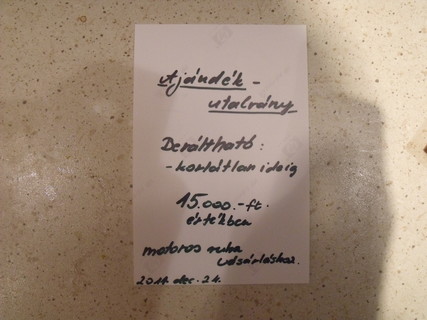 Ajándék -
utalvány
Beváltható:
- korlátlan ideig
15.000.-ft.
értékben
motoros ruha
vásárláshoz.
2011. dec. 24.